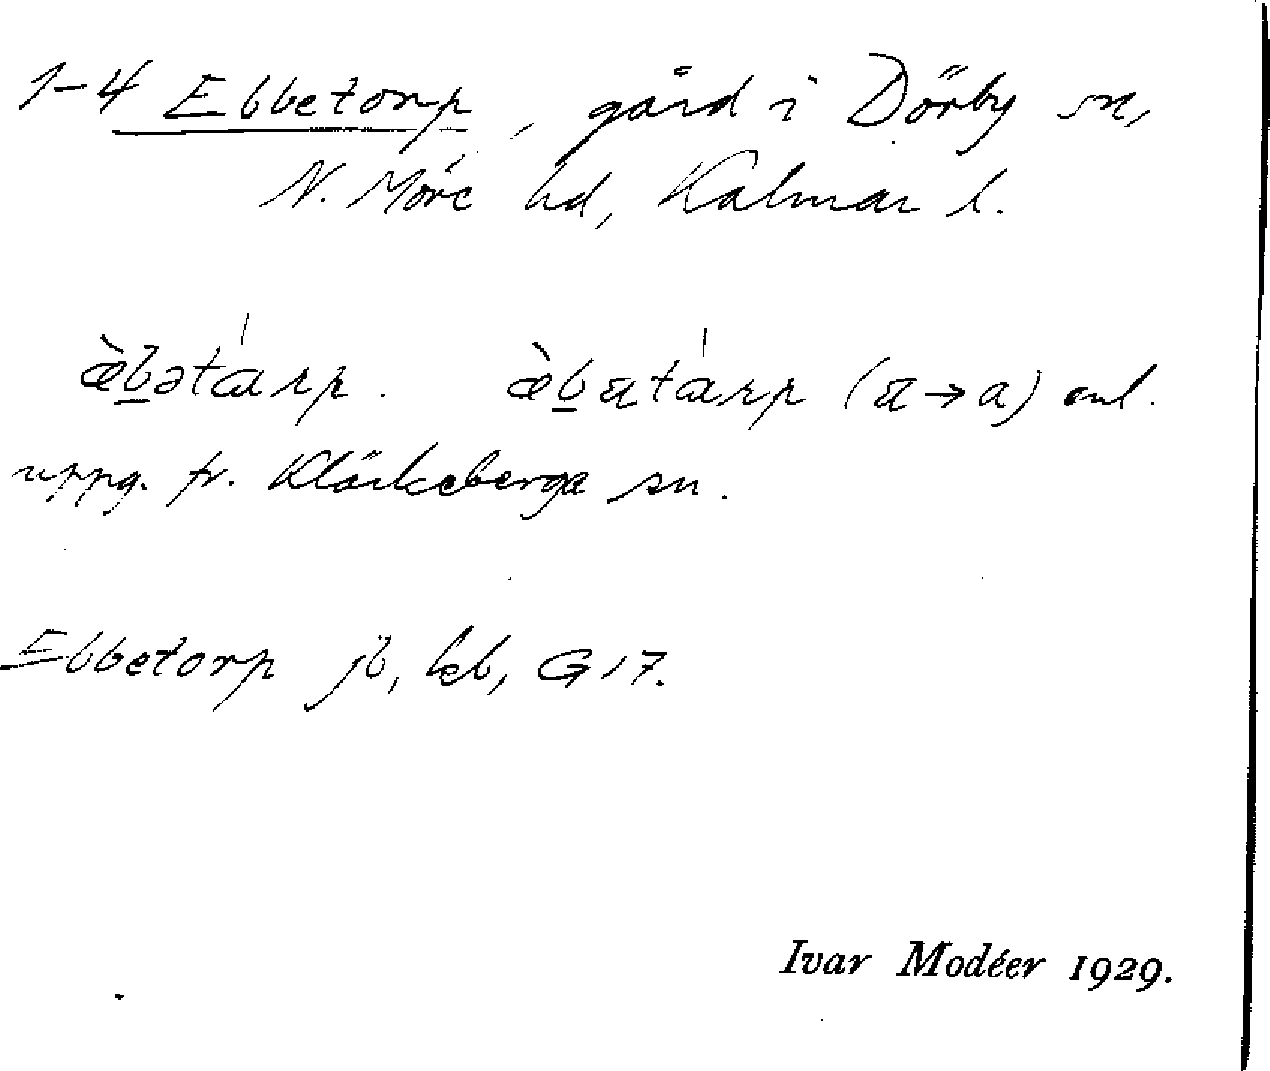 1-4 Ebbetorp, gård i Dörby sn,
N. Möre hd, Kalmar l.
æ̀b̲ətá̍rp. æ̀b̲ata̍rp (a→a) enl.
uppg. fr. Kläckeberga sn.
Ebbetorp jb, kb, G17.
Ivar Modéer 1929.